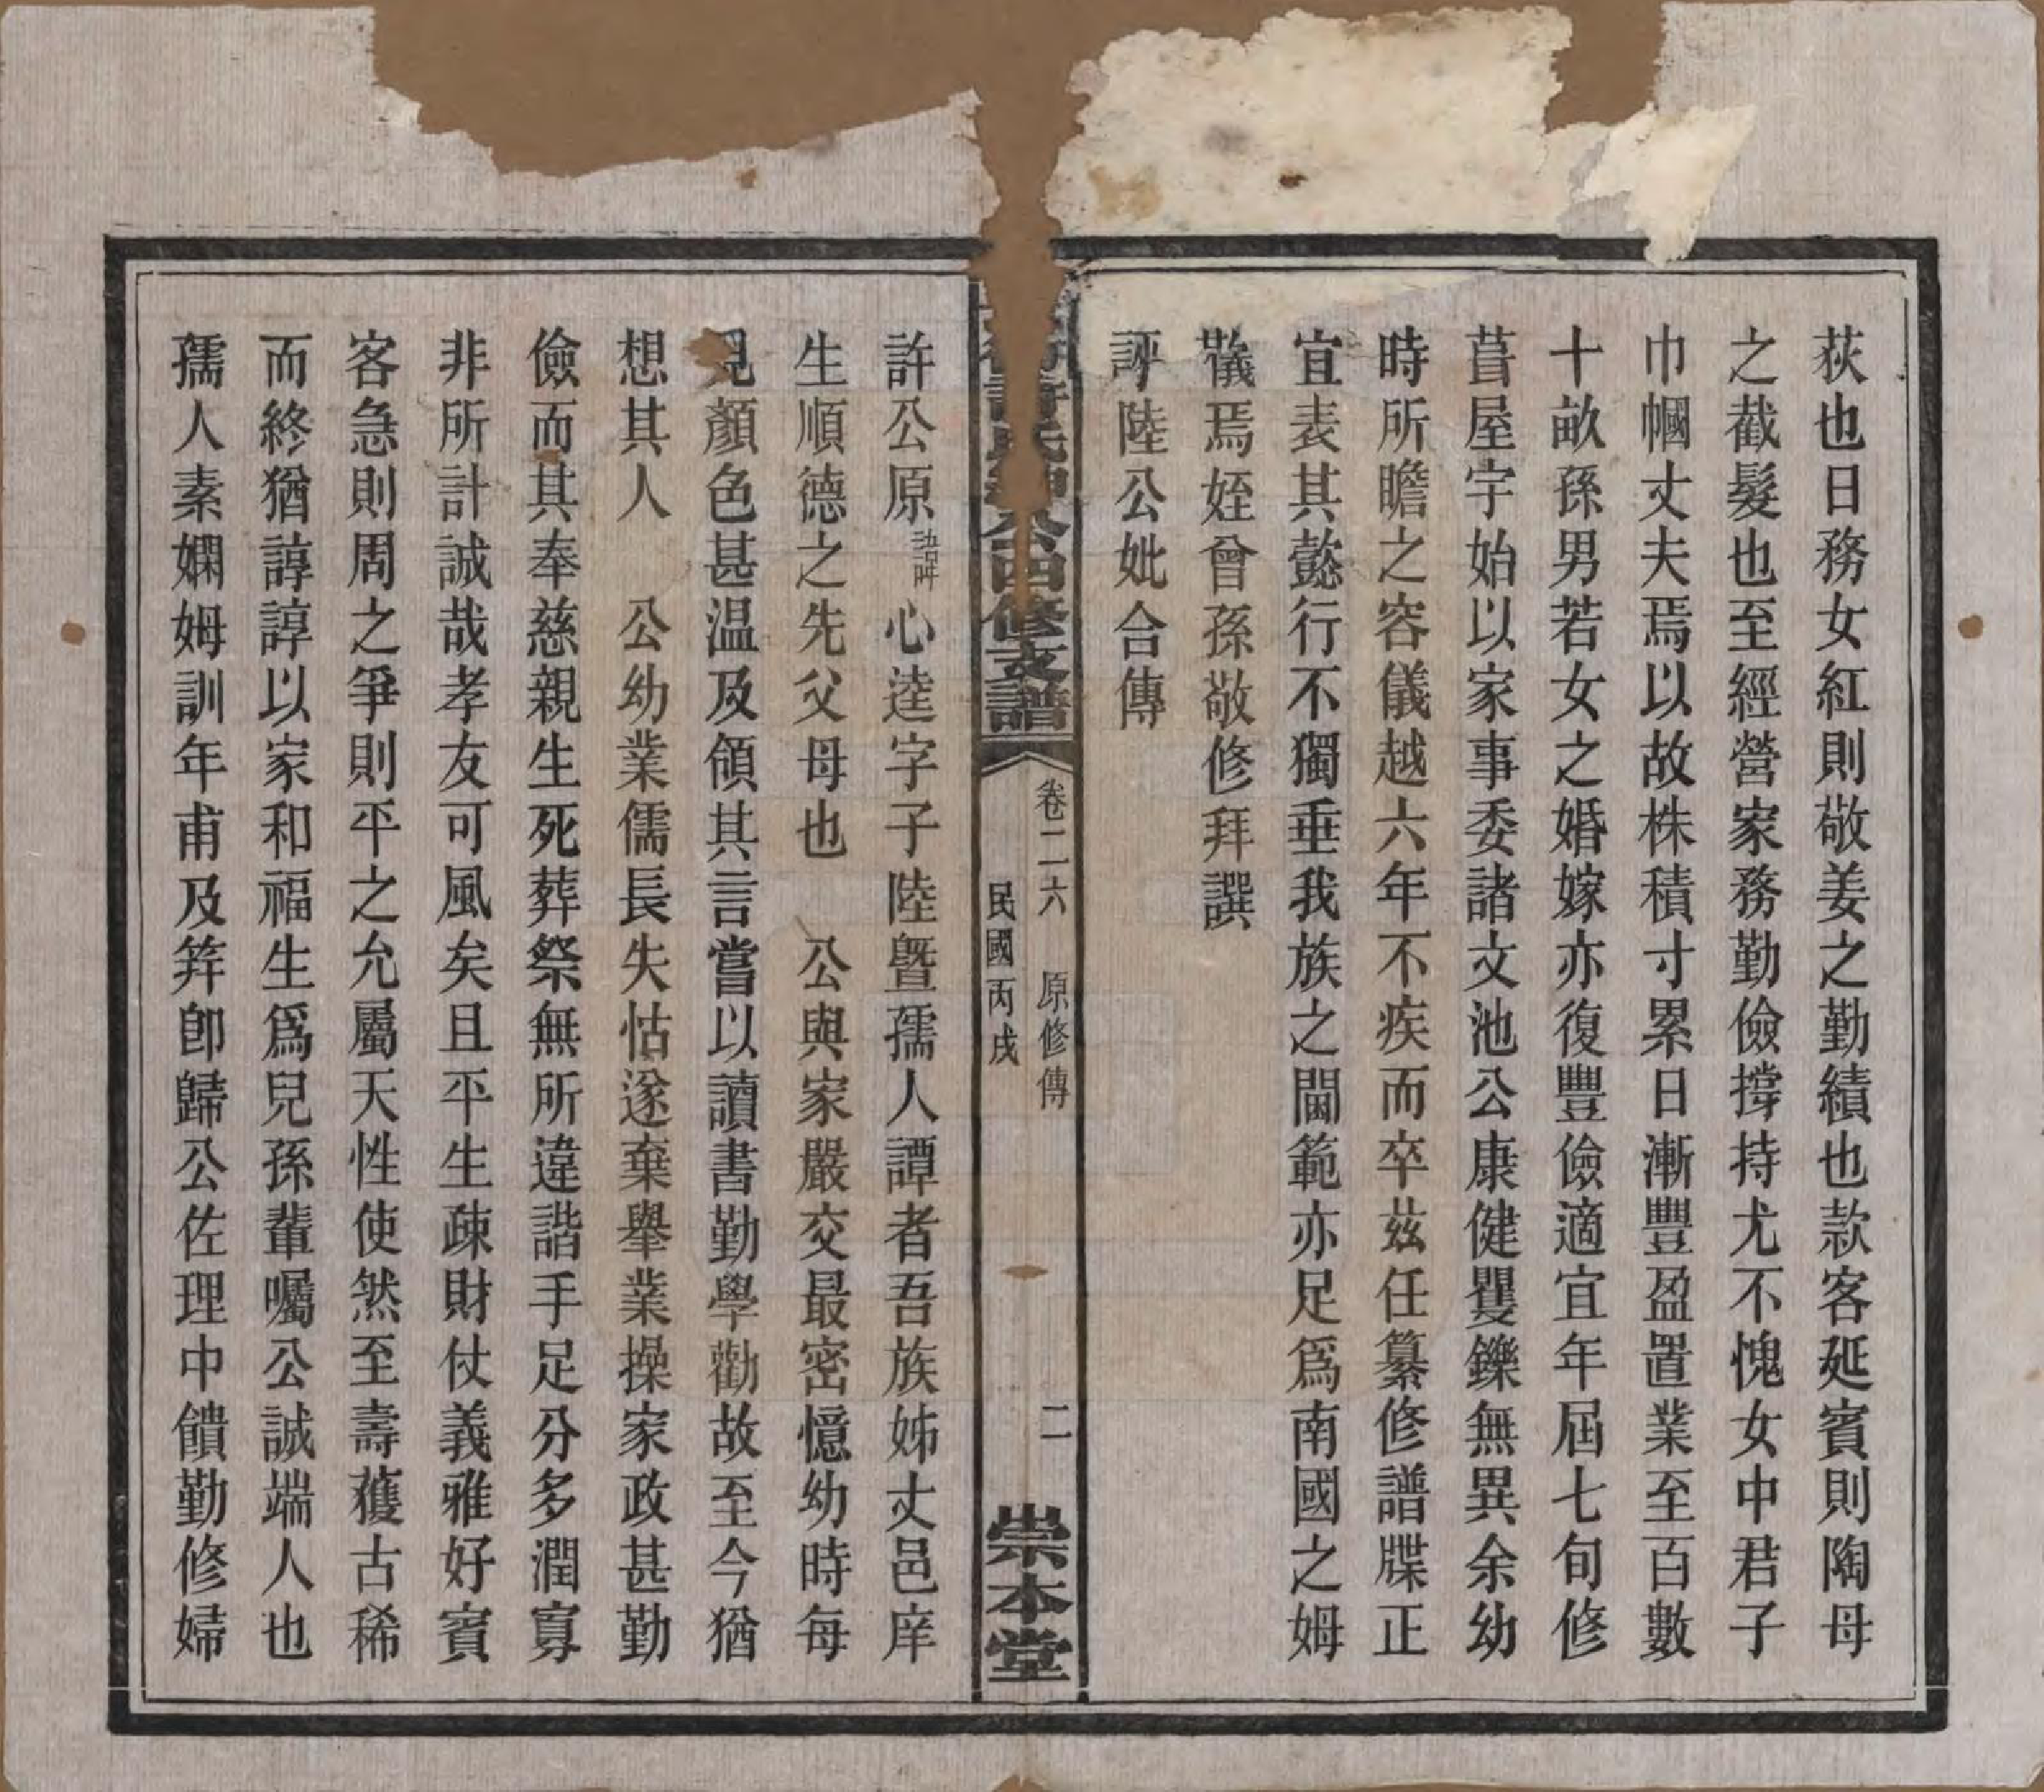 荻也日務女紅則敬姜之勤績也款客延賓則陶母
之截髮也至經營家務勤儉撐持尤不愧女中君子
巾幗丈夫焉以故株積寸累日漸豐盈置業至百數
十畝孫男若女之婚嫁亦復豐儉適宜年屆七旬修
葺屋宇始以家事委諸文池公康健矍鑠無異余幼
時所瞻之容儀越六年不疾而卒茲任纂修譜牒正
宜表其懿行不獨垂我族之閫範亦足爲南國之姆
儀焉姪曾孫敬修拜譔
諪陸公妣合傳
許氏 公四修支譜
卷二六 原修傳 二
民國丙戌
崇本堂
許公原 心逵字子陸暨孺人譚者吾族姊丈邑庠
生順德之先父母也 公與家嚴交最密憶幼時每
見顏色甚温及領其言嘗以讀書勤學勸故至今猶
想其人 公幼業儒長失怙遂棄舉業操家政甚勤
儉而其奉慈親生死葬祭無所違諧手足分多潤寡
非所計誠哉孝友可風矣且平生疎財仗義雅好賓
客急則周之爭則平之允屬天性使然至壽獲古稀
而終猶諄諄以家和福生爲兒孫輩囑公誠端人也
孺人素嫻姆訓年甫及笄卽歸公佐理中饋勤修婦